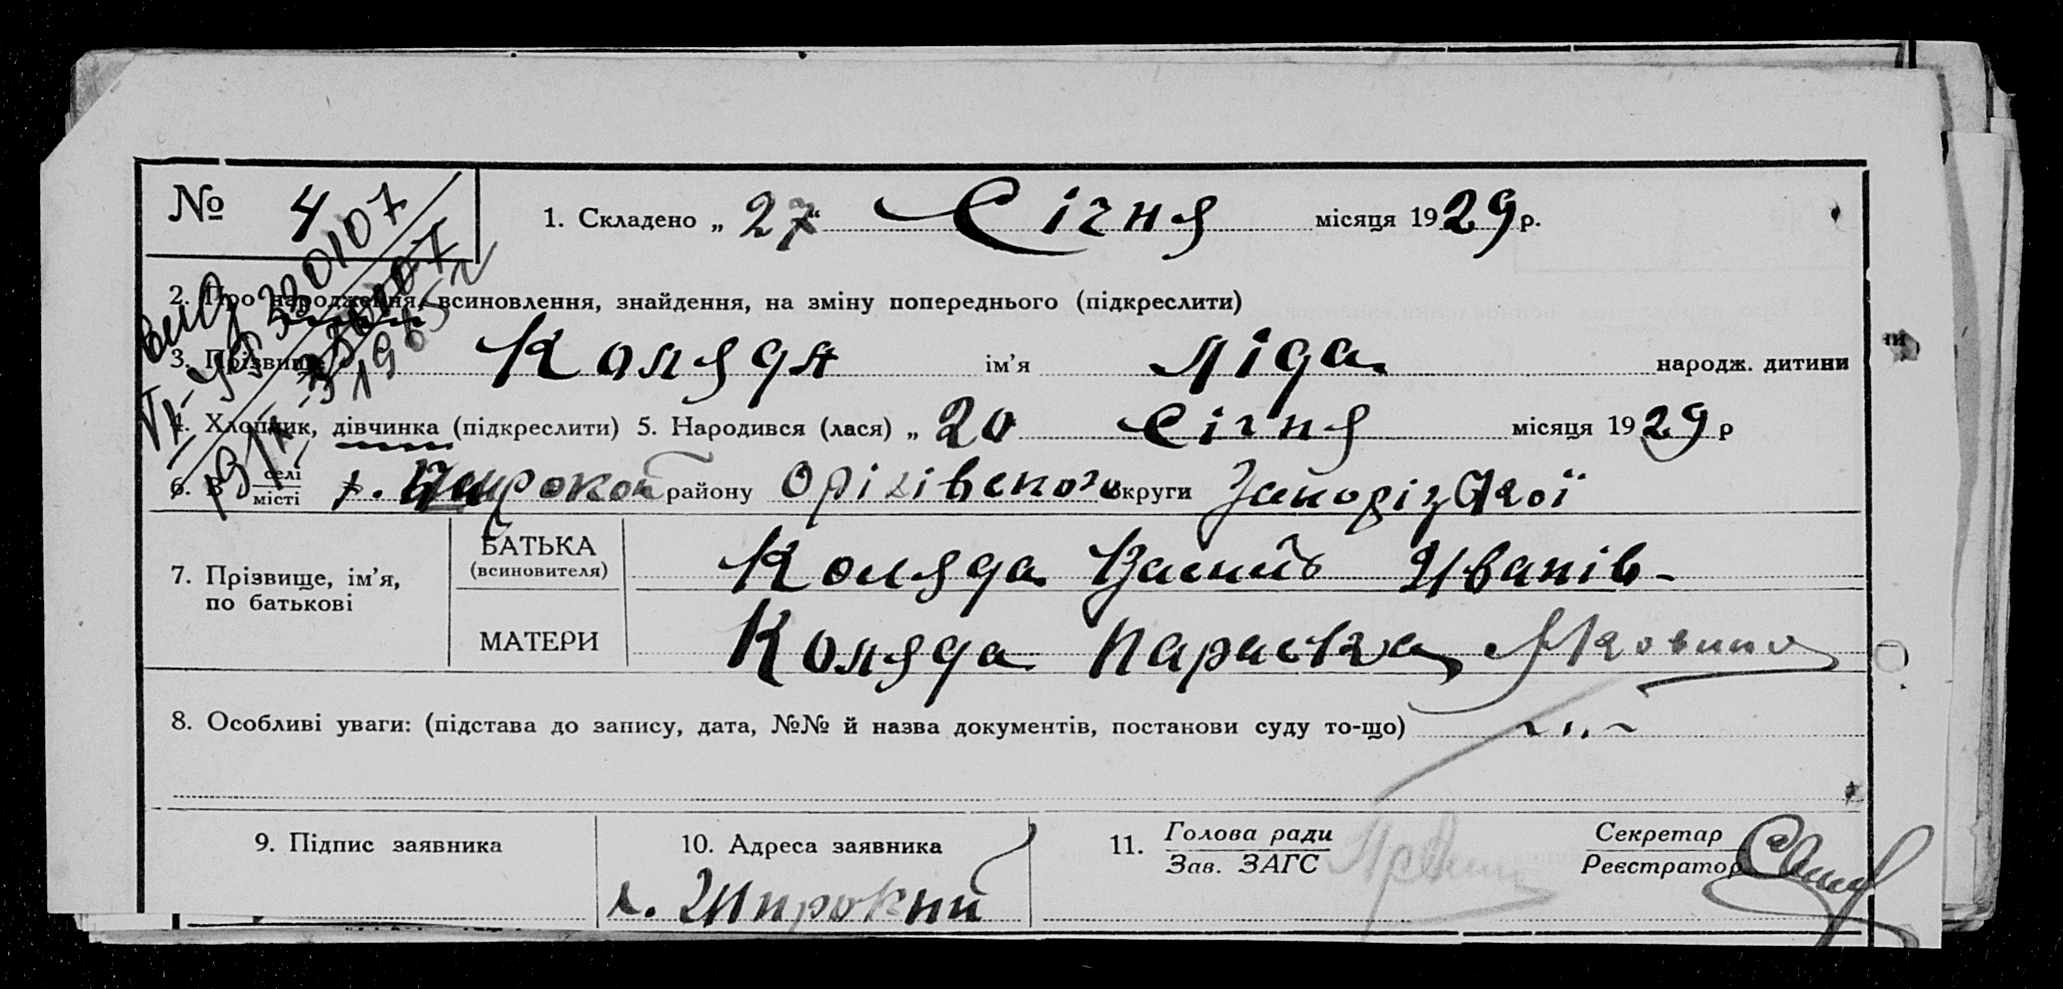 № 4
1. Складено „ 27 “ Січня місяця 1929 р.
2. Про народження, всиновлення, знайдення, на зміну попереднього (підкреслити)
3. Прізвище Коляда ім’я Ліда народж. дитини
4. Хлопчик, дівчинка (підкреслити) 5. Народився (лася) „ 20 Січня місяця 1929 р
6. В селі
місті х. Широкой району Оріхівского округи Запорізської
7. Прізвище, ім’я, по батькові
БАТЬКА (всиновителя) Коляда Василь Иванів-
МАТЕРИ Коляда Параска Яковина
8. Особливі уваги: (підстава до запису, дата, №№ й назва документів, постанови суду то-що)
9. Підпис заявника
10. Адреса заявника
х. Широкий
11. Голова ради
Зав. ЗАГС
Секретар
Реєстратор